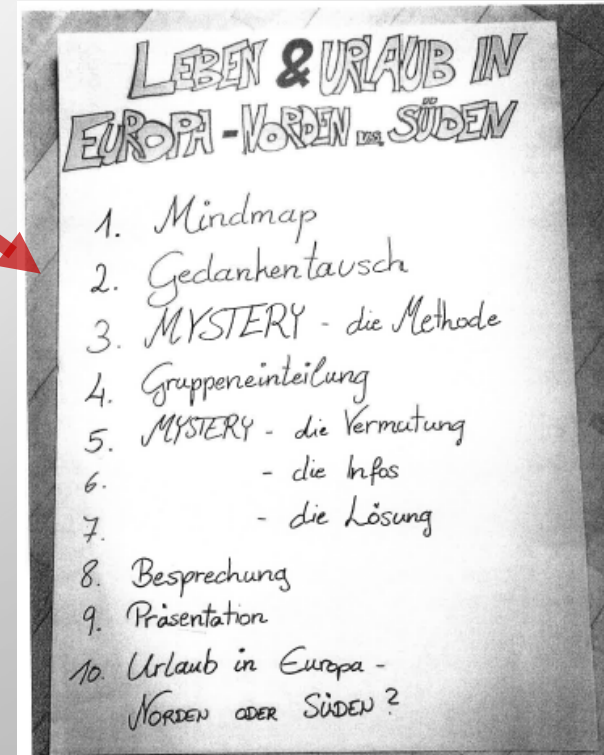 LEBEN & URLAUB IN
EUROPA - NORDEN vs. SÜDEN
1. Mindmap
2. Gedankentausch
3. MYSTERY - die Methode
4. Gruppeneinteilung
5. MYSTERY - die Vermutung
6. - die Infos
7. - die Lösung
8. Besprechung
9. Präsentation
10. Urlaub in Europa -
NORDEN ODER SÜDEN?